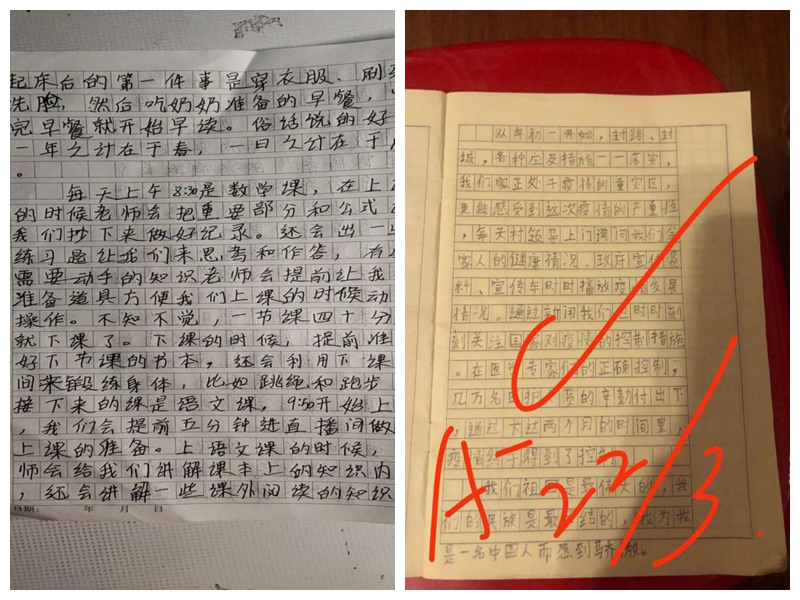 起床后的第一件事是穿衣服、刷
洗脸,然后吃奶奶准备的早餐,
完早餐就开始早读。俗话说的好
一年之计在于春,一日之计在于
。
每天上午8:30是数学课,在上
的时候老师会把重要部分和公式
我们抄下来做好纪录。还会出一
练习题让我们来思考和作答,有
需要动手的知识老师会提前让我
准备道具方便我们上课的时候动
操作。不知不觉,一节课四十分
就下课了。下课的时候,提前准
好下节课的书本,还会利用下课
间来锻练身体,比如跳绳和跑步
接下来的课是语文课,9:50开始上
,我们会提前五分钟进直播间做
上课的准备。上语文课的时候,
师会给我们讲解课本上的知识内
,还会讲解一些课外阅读的知识
日期: 年 月 日
从年初一开始,封路、封
城,各种应及措施一一落实,
我们家正处于疫情的重灾区,
更能感受到这次疫情的严重性
,每天村领导上门询问我们全
家人的健康情况。政府宣传资
料、宣传车时时播放疫情
情况。通过新闻我们也时时刻
刻关注国家对疫情的控制措施
。在医学专家们的正确控制,
几万名医护人员的辛勤付出下
,通过长达两个月的时间里,
疫情终于得到了控制。
我们祖国是最伟大的,我
们的民族是最团结的,我为我
是一名中国人而感到骄傲。
A- 22/3.